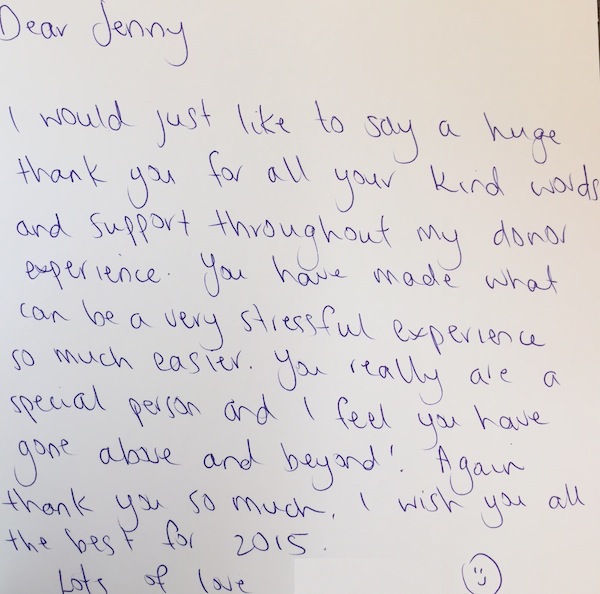 Dear Jenny
I would just like to say a huge
thank you for all your kind words
and support throughout my donor
experience. You have made what
can be a very stressful experience
so much easier. You really are a
special person and I feel you have
gone above and beyond! Again
thank you so much, I wish you all
the best for 2015.
Lots of love